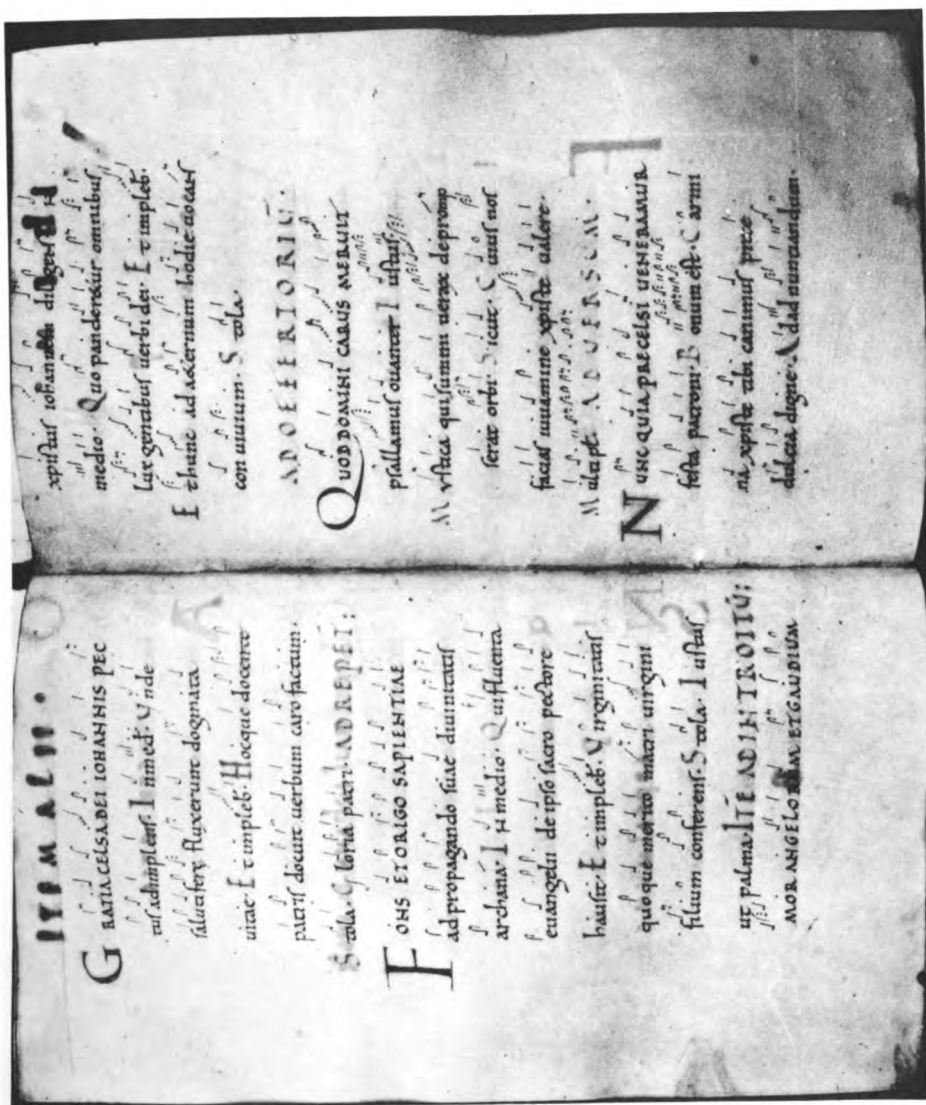 ITEM ALII ·
GRATIA CELSA DEI IOHANNIS PEC
tus adimplens · In med · Vnde
salutiferę fluxerunt dogmata
uitae · Et impleb · Hocque docente
patris docuit uerbum caro factum ·
Stola · Gloria patri AD REPET:
FONS ET ORIGO SAPIENTIAE
ad propagando suae diuinitatis
archana · IN medio · Qui fluenta
euangelii de ipso sacro pectore
hausit · Et impleb · Virginitatis
quoque merito matri uirgini
filium conferens · Stola · Iustus
ut palma · ITĒ AD INTROITŪ:
MOR ANGELORUM ET GAUDIUM
xpistus iohannem diligens IN
medio · Quo panderetur omnibus
lux gentibus uerbi dei · Et impleb ·
Et hunc ad aeternum hodie uocans
conuiuium · Stola ·
AD OFFERTORIŪ ·
QUOD DOMINI CARUS MERUIT
psallamus ouanter Iustus
Mystica qui summi uerax deprompserat orbi · Sicut · Cuius nos
facias iuuamine xpiste ualere ·
Multipł · AD UERSUM ·
NUNC QUIA PRECELSI UENERAMUR
festa patroni · Bonum est · Carmi
na xpiste tibi canimus prae
dulcia digne · Ad adnuntiandum ·